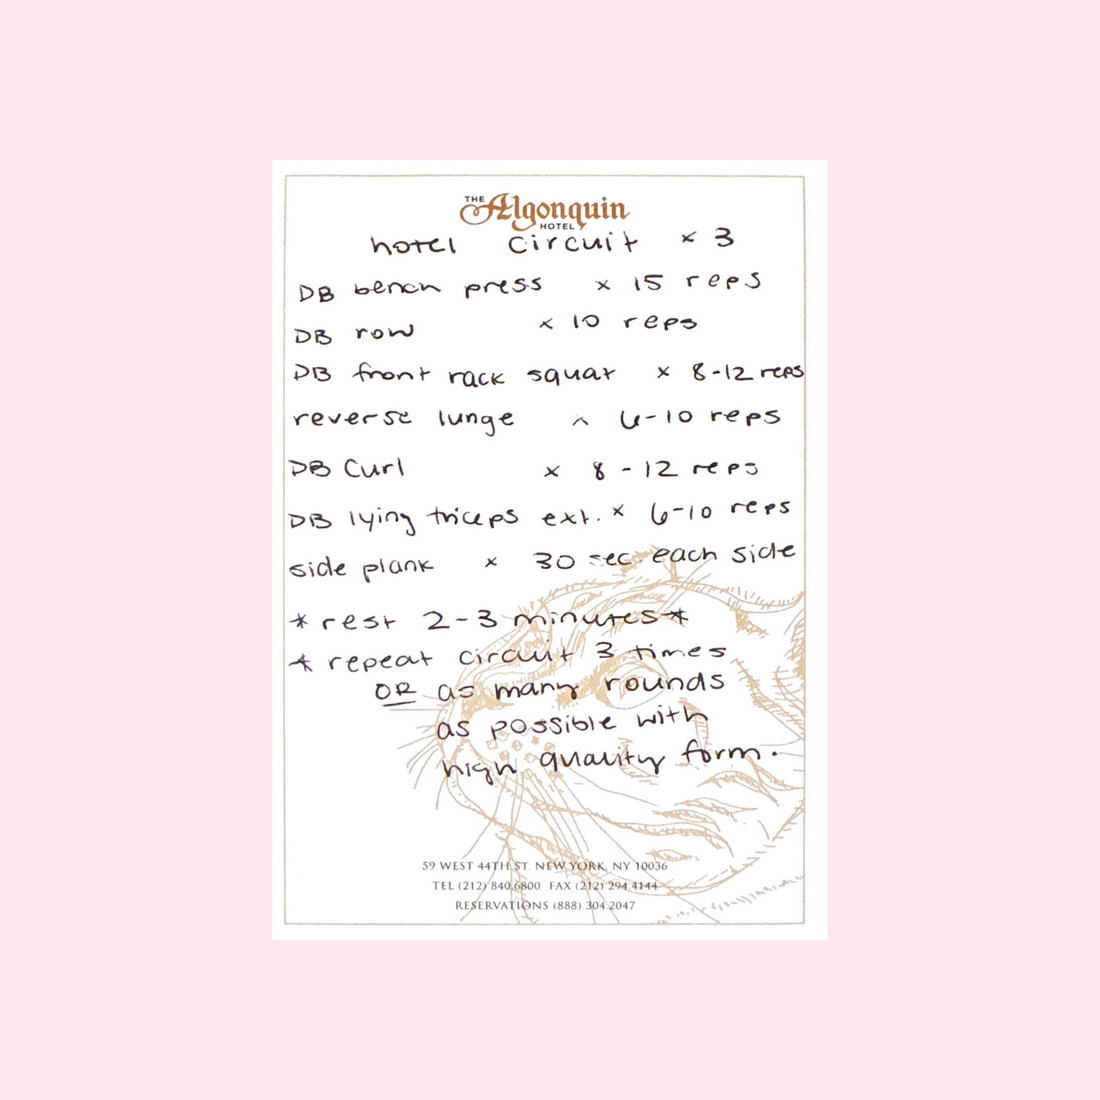 THE Algonquin
HOTEL
hotel circuit x 3
DB bench press x 15 reps
DB row x 10 reps
DB front rack squat x 8-12 reps
reverse lunge x 6-10 reps
DB Curl x 8 - 12 reps
DB lying triceps ext. x 6-10 reps
side plank x 30 sec each side
* rest 2-3 minutes *
* repeat circuit 3 times
OR as many rounds
as possible with
high quality form.
59 WEST 44TH ST NEW YORK, NY 10036
TEL (212) 840.6800 FAX (212) 294.4144
RESERVATIONS (888) 304.2047